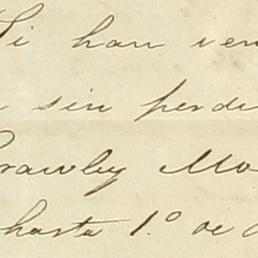 Si han ven
sin perdi
Crawley Mo
hasta 1.º de